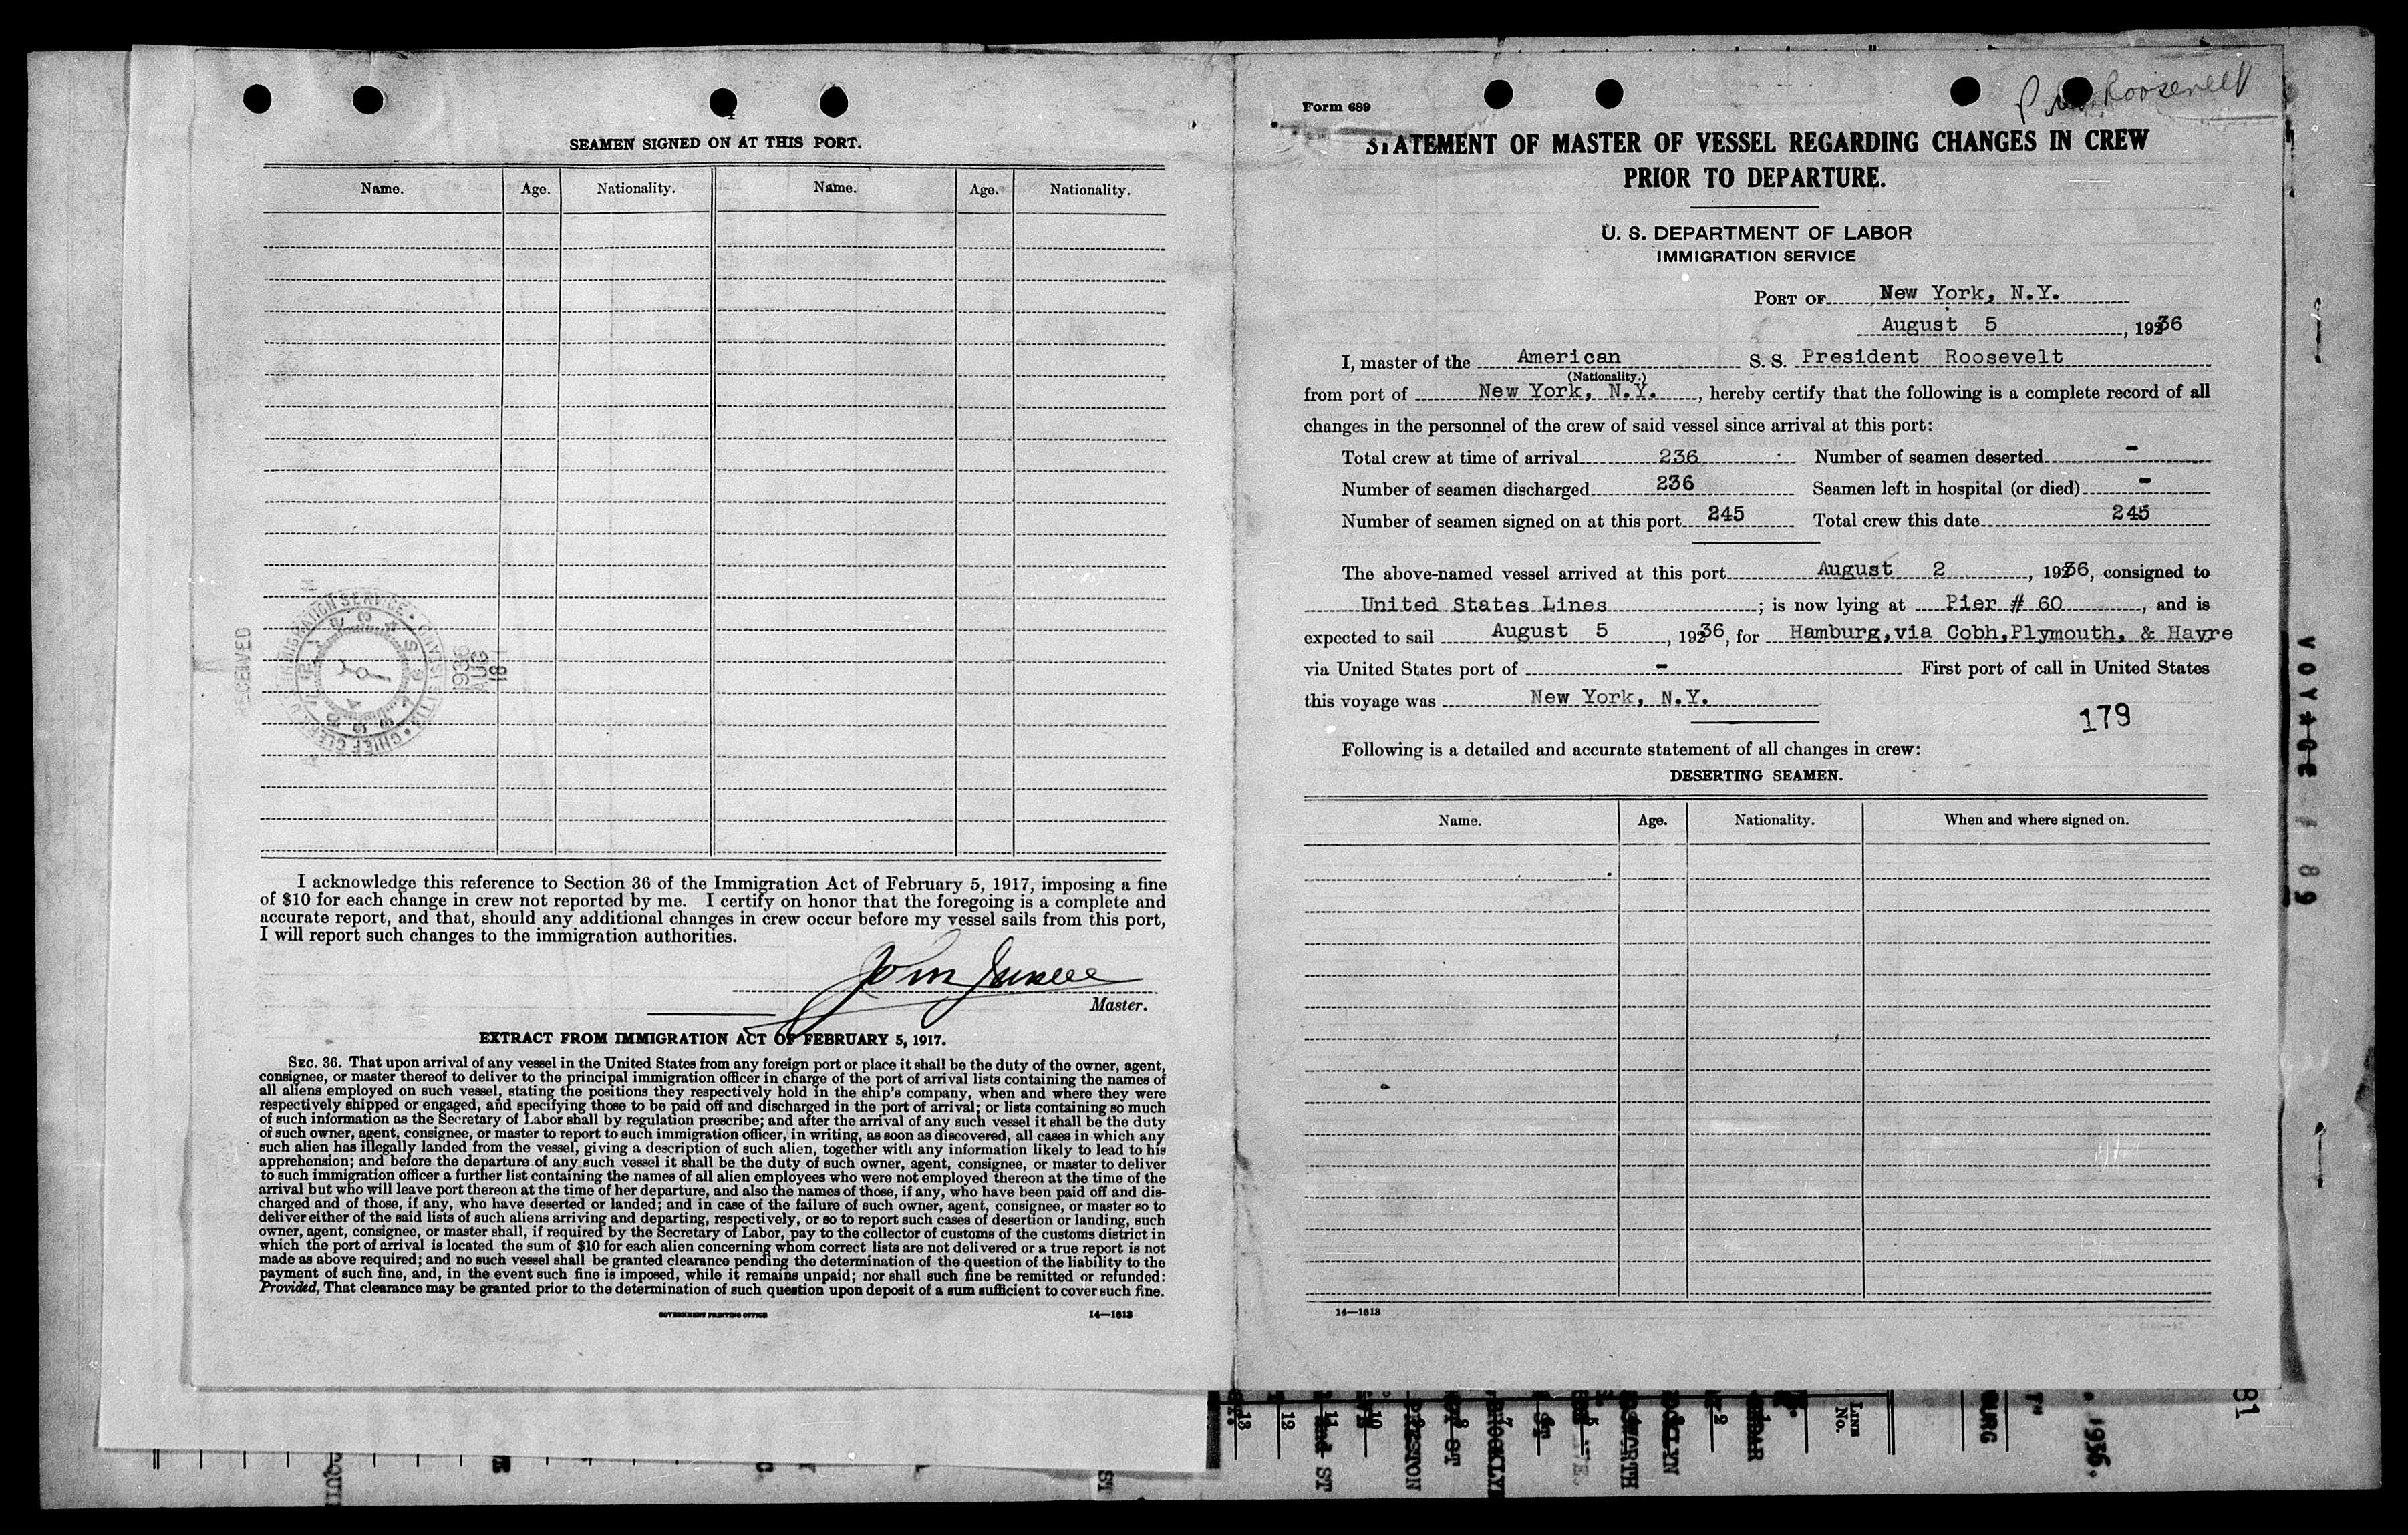 SEAMEN SIGNED ON AT THIS PORT.
Name. Age. Nationality. Name. Age. Nationality.
RECEIVED
IMMIGRATION SERVICE
CHIEF CLERK
1936
AUG
I acknowledge this reference to Section 36 of the Immigration Act of February 5, 1917, imposing a fine
of $10 for each change in crew not reported by me. I certify on honor that the foregoing is a complete and
accurate report, and that, should any additional changes in crew occur before my vessel sails from this port,
I will report such changes to the immigration authorities.
John
Master.
EXTRACT FROM IMMIGRATION ACT OF FEBRUARY 5, 1917.
SEC. 36. That upon arrival of any vessel in the United States from any foreign port or place it shall be the duty of the owner, agent,
consignee, or master thereof to deliver to the principal immigration officer in charge of the port of arrival lists containing the names of
all aliens employed on such vessel, stating the positions they respectively hold in the ship's company, when and where they were
respectively shipped or engaged, and specifying those to be paid off and discharged in the port of arrival; or lists containing so much
of such information as the Secretary of Labor shall by regulation prescribe; and after the arrival of any such vessel it shall be the duty
of such owner, agent, consignee, or master to report to such immigration officer, in writing, as soon as discovered, all cases in which any
such alien has illegally landed from the vessel, giving a description of such alien, together with any information likely to lead to his
apprehension; and before the departure of any such vessel it shall be the duty of such owner, agent, consignee, or master to deliver
to such immigration officer a further list containing the names of all alien employees who were not employed thereon at the time of the
arrival but who will leave port thereon at the time of her departure, and also the names of those, if any, who have been paid off and dis-
charged and of those, if any, who have deserted or landed; and in case of the failure of such owner, agent, consignee, or master so to
deliver either of the said lists of such aliens arriving and departing, respectively, or so to report such cases of desertion or landing, such
owner, agent, consignee, or master shall, if required by the Secretary of Labor, pay to the collector of customs of the customs district in
which the port of arrival is located the sum of $10 for each alien concerning whom correct lists are not delivered or a true report is not
made as above required; and no such vessel shall be granted clearance pending the determination of the question of the liability to the
payment of such fine, and, in the event such fine is imposed, while it remains unpaid; nor shall such fine be remitted or refunded:
Provided, That clearance may be granted prior to the determination of such question upon deposit of a sum sufficient to cover such fine.
GOVERNMENT PRINTING OFFICE 14—1613
Roosevelt
Form 689
STATEMENT OF MASTER OF VESSEL REGARDING CHANGES IN CREW
PRIOR TO DEPARTURE.
U. S. DEPARTMENT OF LABOR
IMMIGRATION SERVICE
PORT OF New York, N.Y.
August 5, 1936
I, master of the American S. S. President Roosevelt
(Nationality.)
from port of New York, N.Y., hereby certify that the following is a complete record of all
changes in the personnel of the crew of said vessel since arrival at this port:
Total crew at time of arrival 236 Number of seamen deserted -
Number of seamen discharged 236 Seamen left in hospital (or died) -
Number of seamen signed on at this port 245 Total crew this date 245
The above-named vessel arrived at this port August 2, 1936, consigned to
United States Lines; is now lying at Pier # 60, and is
expected to sail August 5, 1936, for Hamburg, via Cobh, Plymouth, & Havre
via United States port of - First port of call in United States
this voyage was New York, N.Y.
179
Following is a detailed and accurate statement of all changes in crew:
DESERTING SEAMEN.
Name. Age. Nationality. When and where signed on.
14—1613
LINE No.
1936.
PRESTON